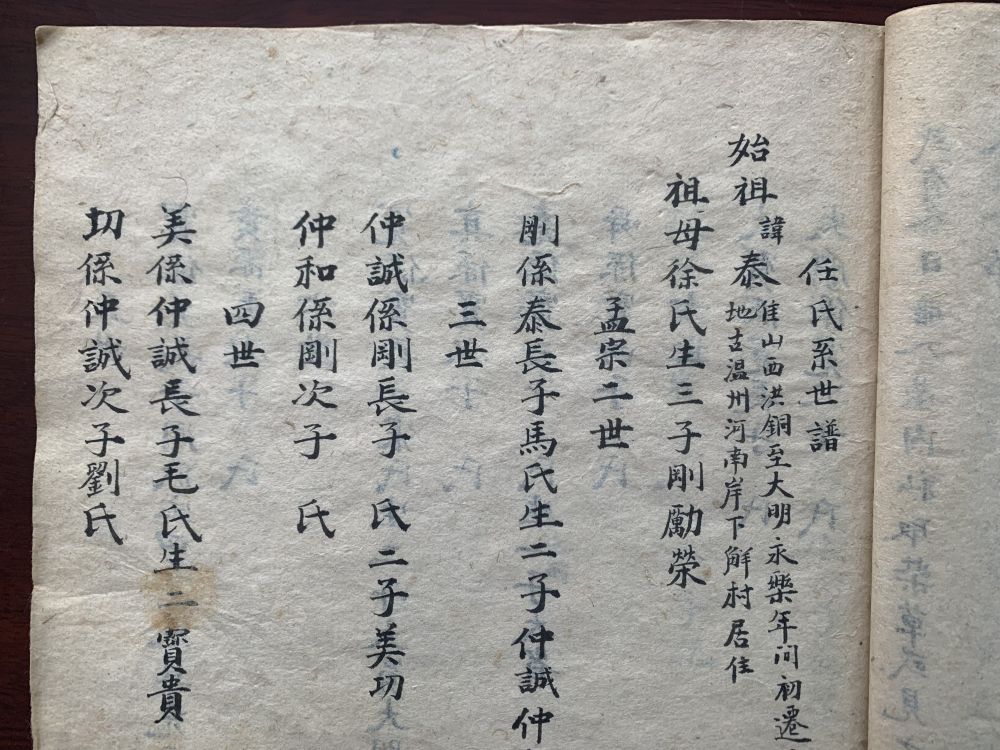 任氏系世譜
始祖諱泰隹山西洪銅至大明永樂年间初遷
地去温州河南岸下解村居住
祖母徐氏生三子剛勵榮
孟宗二世
剛係泰長子馬氏生二子仲誠仲
三世
仲誠係剛長子 氏二子美功
仲和係剛次子 氏
四世
美係仲誠長子毛氏生二寶貴
功係仲誠次子劉氏